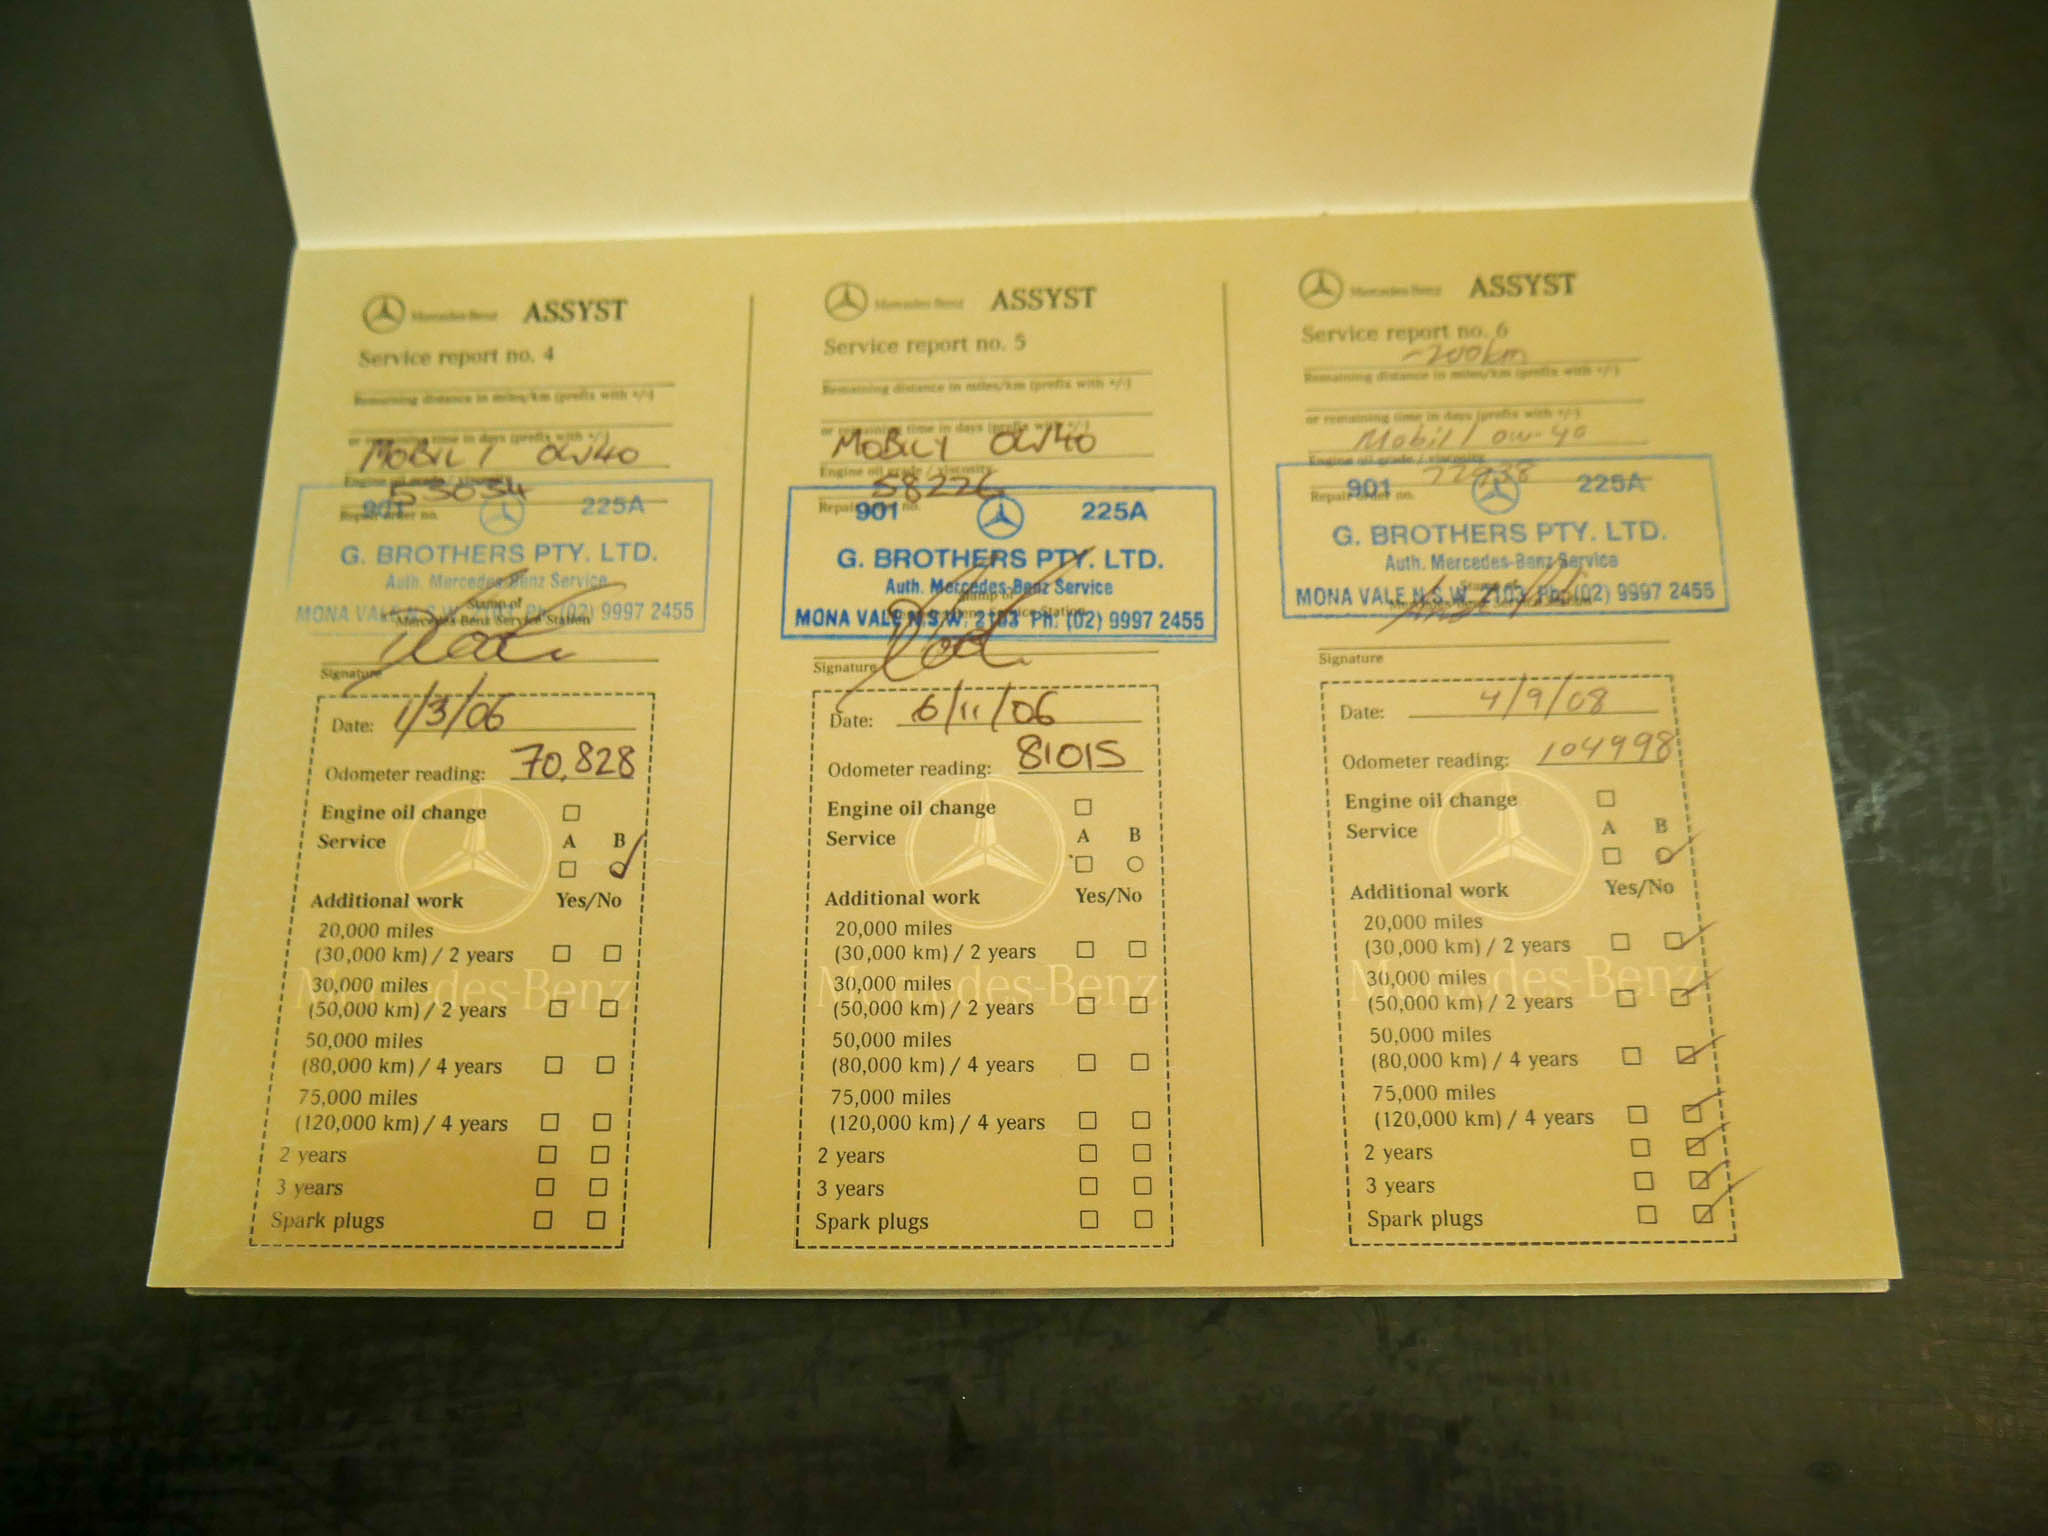 Mercedes-Benz ASSYST
Service report no. 4
Remaining distance in miles/km (prefix with +/-)
or remaining time in days (prefix with +/-)
MOBIL 1 0W40
Engine oil grade / viscosity
53034
Repair order no.
901 225A
G. BROTHERS PTY. LTD.
Auth. Mercedes-Benz Service
Stamp of
MONA VALE N.S.W. 2103 Ph: (02) 9997 2455
Mercedes Benz Service Station
Signature
Date: 1/3/06
Odometer reading: 70,828
Engine oil change
Service A B
Additional work Yes/No
20,000 miles
(30,000 km) / 2 years
30,000 miles
Mercedes-Benz
(50,000 km) / 2 years
50,000 miles
(80,000 km) / 4 years
75,000 miles
(120,000 km) / 4 years
2 years
3 years
Spark plugs
Mercedes-Benz ASSYST
Service report no. 5
Remaining distance in miles/km (prefix with +/-)
or remaining time in days (prefix with +/-)
MOBIL 1 0W40
Engine oil grade / viscosity
58226
Repair order no.
901 225A
G. BROTHERS PTY. LTD.
Auth. Mercedes-Benz Service
Stamp of
Mercedes Benz Service Station
MONA VALE N.S.W. 2103 Ph: (02) 9997 2455
Signature
Date: 6/11/06
Odometer reading: 81015
Engine oil change
Service A B
Additional work Yes/No
20,000 miles
(30,000 km) / 2 years
30,000 miles
Mercedes-Benz
(50,000 km) / 2 years
50,000 miles
(80,000 km) / 4 years
75,000 miles
(120,000 km) / 4 years
2 years
3 years
Spark plugs
Mercedes-Benz ASSYST
Service report no. 6
-200km
Remaining distance in miles/km (prefix with +/-)
or remaining time in days (prefix with +/-)
Mobil 1 0w-40
Engine oil grade / viscosity
77938
Repair order no.
901 225A
G. BROTHERS PTY. LTD.
Auth. Mercedes-Benz Service
Stamp of
MONA VALE N.S.W. 2103 Ph: (02) 9997 2455
Mercedes Benz Service Station
Signature
Date: 4/9/08
Odometer reading: 104998
Engine oil change
Service A B
Additional work Yes/No
20,000 miles
(30,000 km) / 2 years
30,000 miles
Mercedes-Benz
(50,000 km) / 2 years
50,000 miles
(80,000 km) / 4 years
75,000 miles
(120,000 km) / 4 years
2 years
3 years
Spark plugs